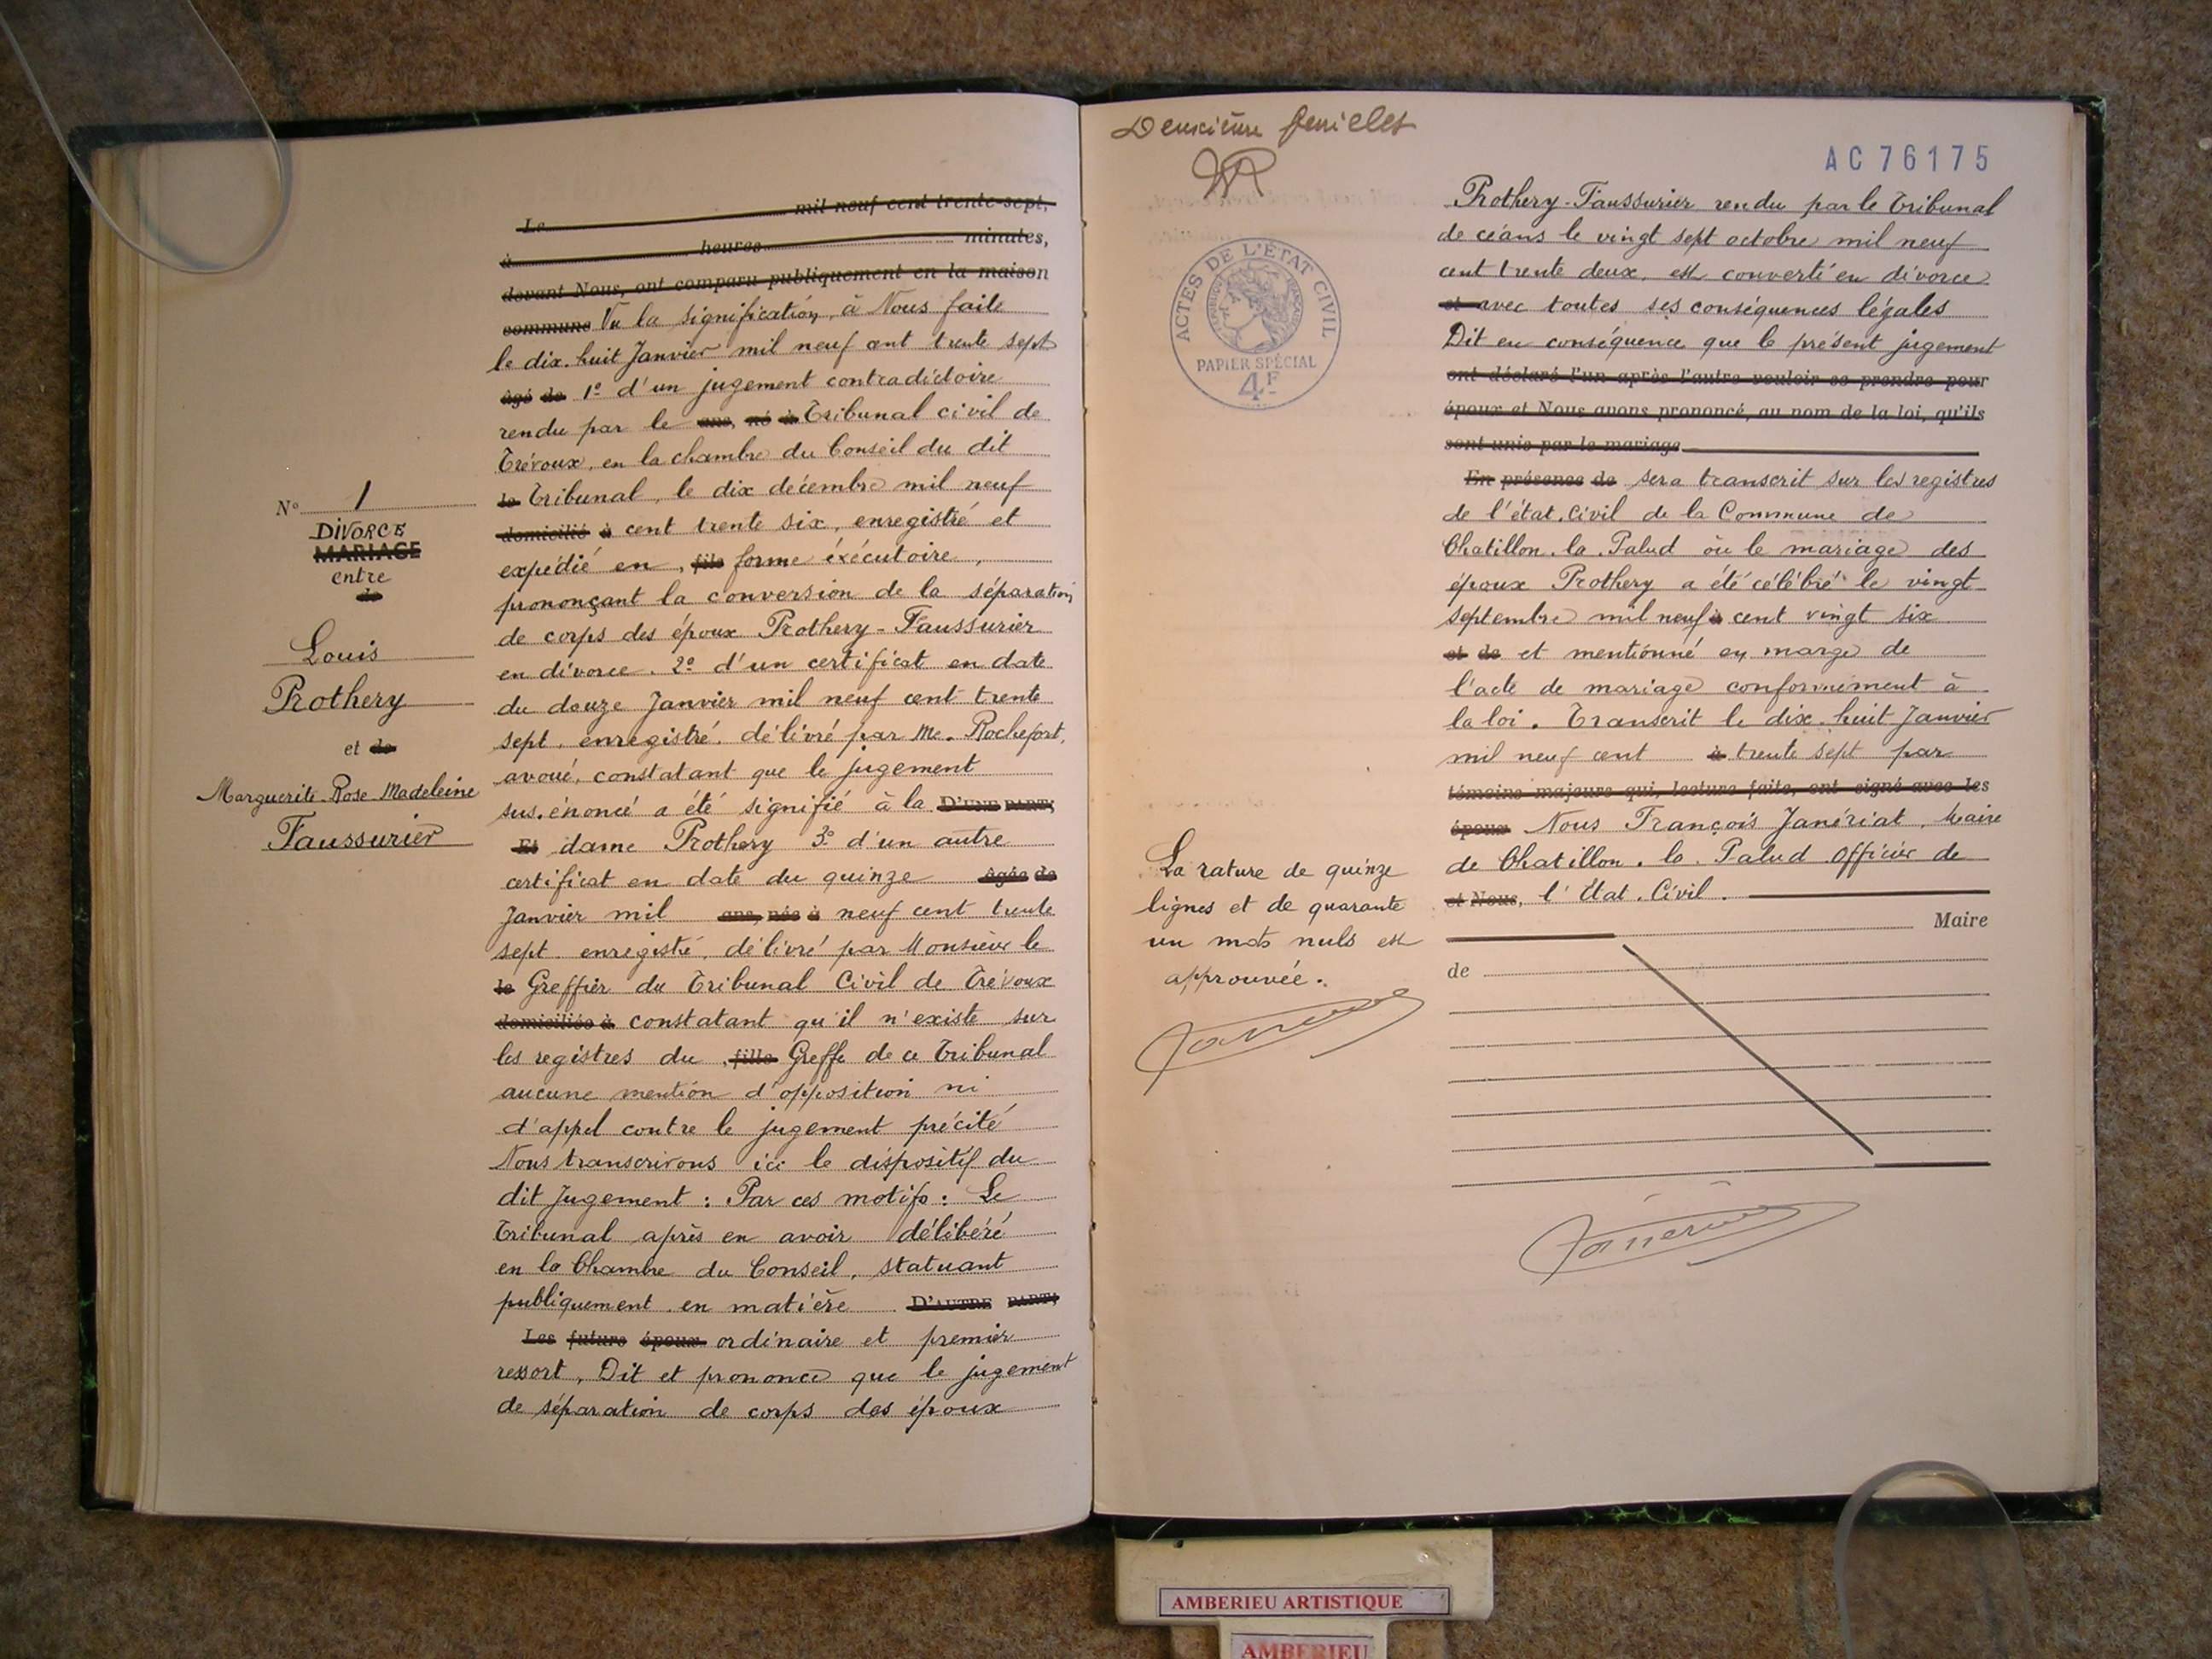 N° 1
DIVORCE
MARIAGE
entre
de
Louis
Prothery
et de
Marguerite-Rose-Madeleine
Faussurier
Le mil neuf cent trente-sept,
à heures minutes,
devant Nous, ont comparu publiquement en la maison
commune Vu la signification, à Nous faite
le dix-huit Janvier mil neuf cent trente sept
âgé de 1° d'un jugement contradictoire
rendu par le ans, né à Tribunal civil de
Trévoux, en la chambre du Conseil du dit
le Tribunal, le dix décembre mil neuf
domicilié à cent trente six, enregistré et
expédié en , fils forme éxécutoire,
prononçant la conversion de la séparation
de corps des époux Prothery-Faussurier
en divorce. 2° d'un certificat en date
du douze Janvier mil neuf cent trente
sept, enregistré, délivré par Me. Rochefort,
avoué, constatant que le jugement
sus.énoncé a été signifié à la D'UNE PART;
Et dame Prothery 3° d'un autre
certificat en date du quinze âgée de
Janvier mil ans, née à neuf cent trente
sept enregistré, délivré par Monsieur le
le Greffier du Tribunal Civil de Trévoux
domiciliée à constatant qu'il n'existe sur
les registres du , fille Greffe de ce Tribunal
aucune mention d'opposition ni
d'appel contre le jugement précité
Nous transcrivons ici le dispositif du
dit Jugement : Par ces motifs : Le
Tribunal après en avoir délibéré
en la Chambre du Conseil, statuant
publiquement en matière D'AUTRE PART;
Les futurs époux ordinaire et premier
ressort, Dit et prononce que le jugement
de séparation de corps des époux
Deuxième
AC 76175
ACTES DE L'ÉTAT CIVIL
RÉPUBLIQUE FRANÇAISE
PAPIER SPÉCIAL
4F
Prothery-Faussurier rendu par le Tribunal
de céans le vingt sept octobre mil neuf
cent trente deux, est converti en divorce
et avec toutes ses conséquences légales
Dit en conséquence que le présent jugement
ont déclaré l'un après l'autre vouloir se prendre pour
époux et Nous avons prononcé, au nom de la loi, qu'ils
sont unis par le mariage
En présence de sera transcrit sur les registres
de l'état.Civil de la Commune de
Chatillon.la.Palud où le mariage des
époux Prothery a été célébré le vingt
septembre mil neuf à cent vingt six
et de et mentionné en marge de
l'acte de mariage conformément à
la loi. Transcrit le dix-huit Janvier
mil neuf cent à trente sept par
témoins majeurs qui, lecture faite, ont signé avec les
époux Nous François Janériat, Maire
de Chatillon.la.Palud officier de
et Nous, l'Etat.Civil.
Maire
de
La rature de quinze
lignes et de quarante
un mots nuls est
approuvée.
AMBERIEU ARTISTIQUE
AMBERIEU